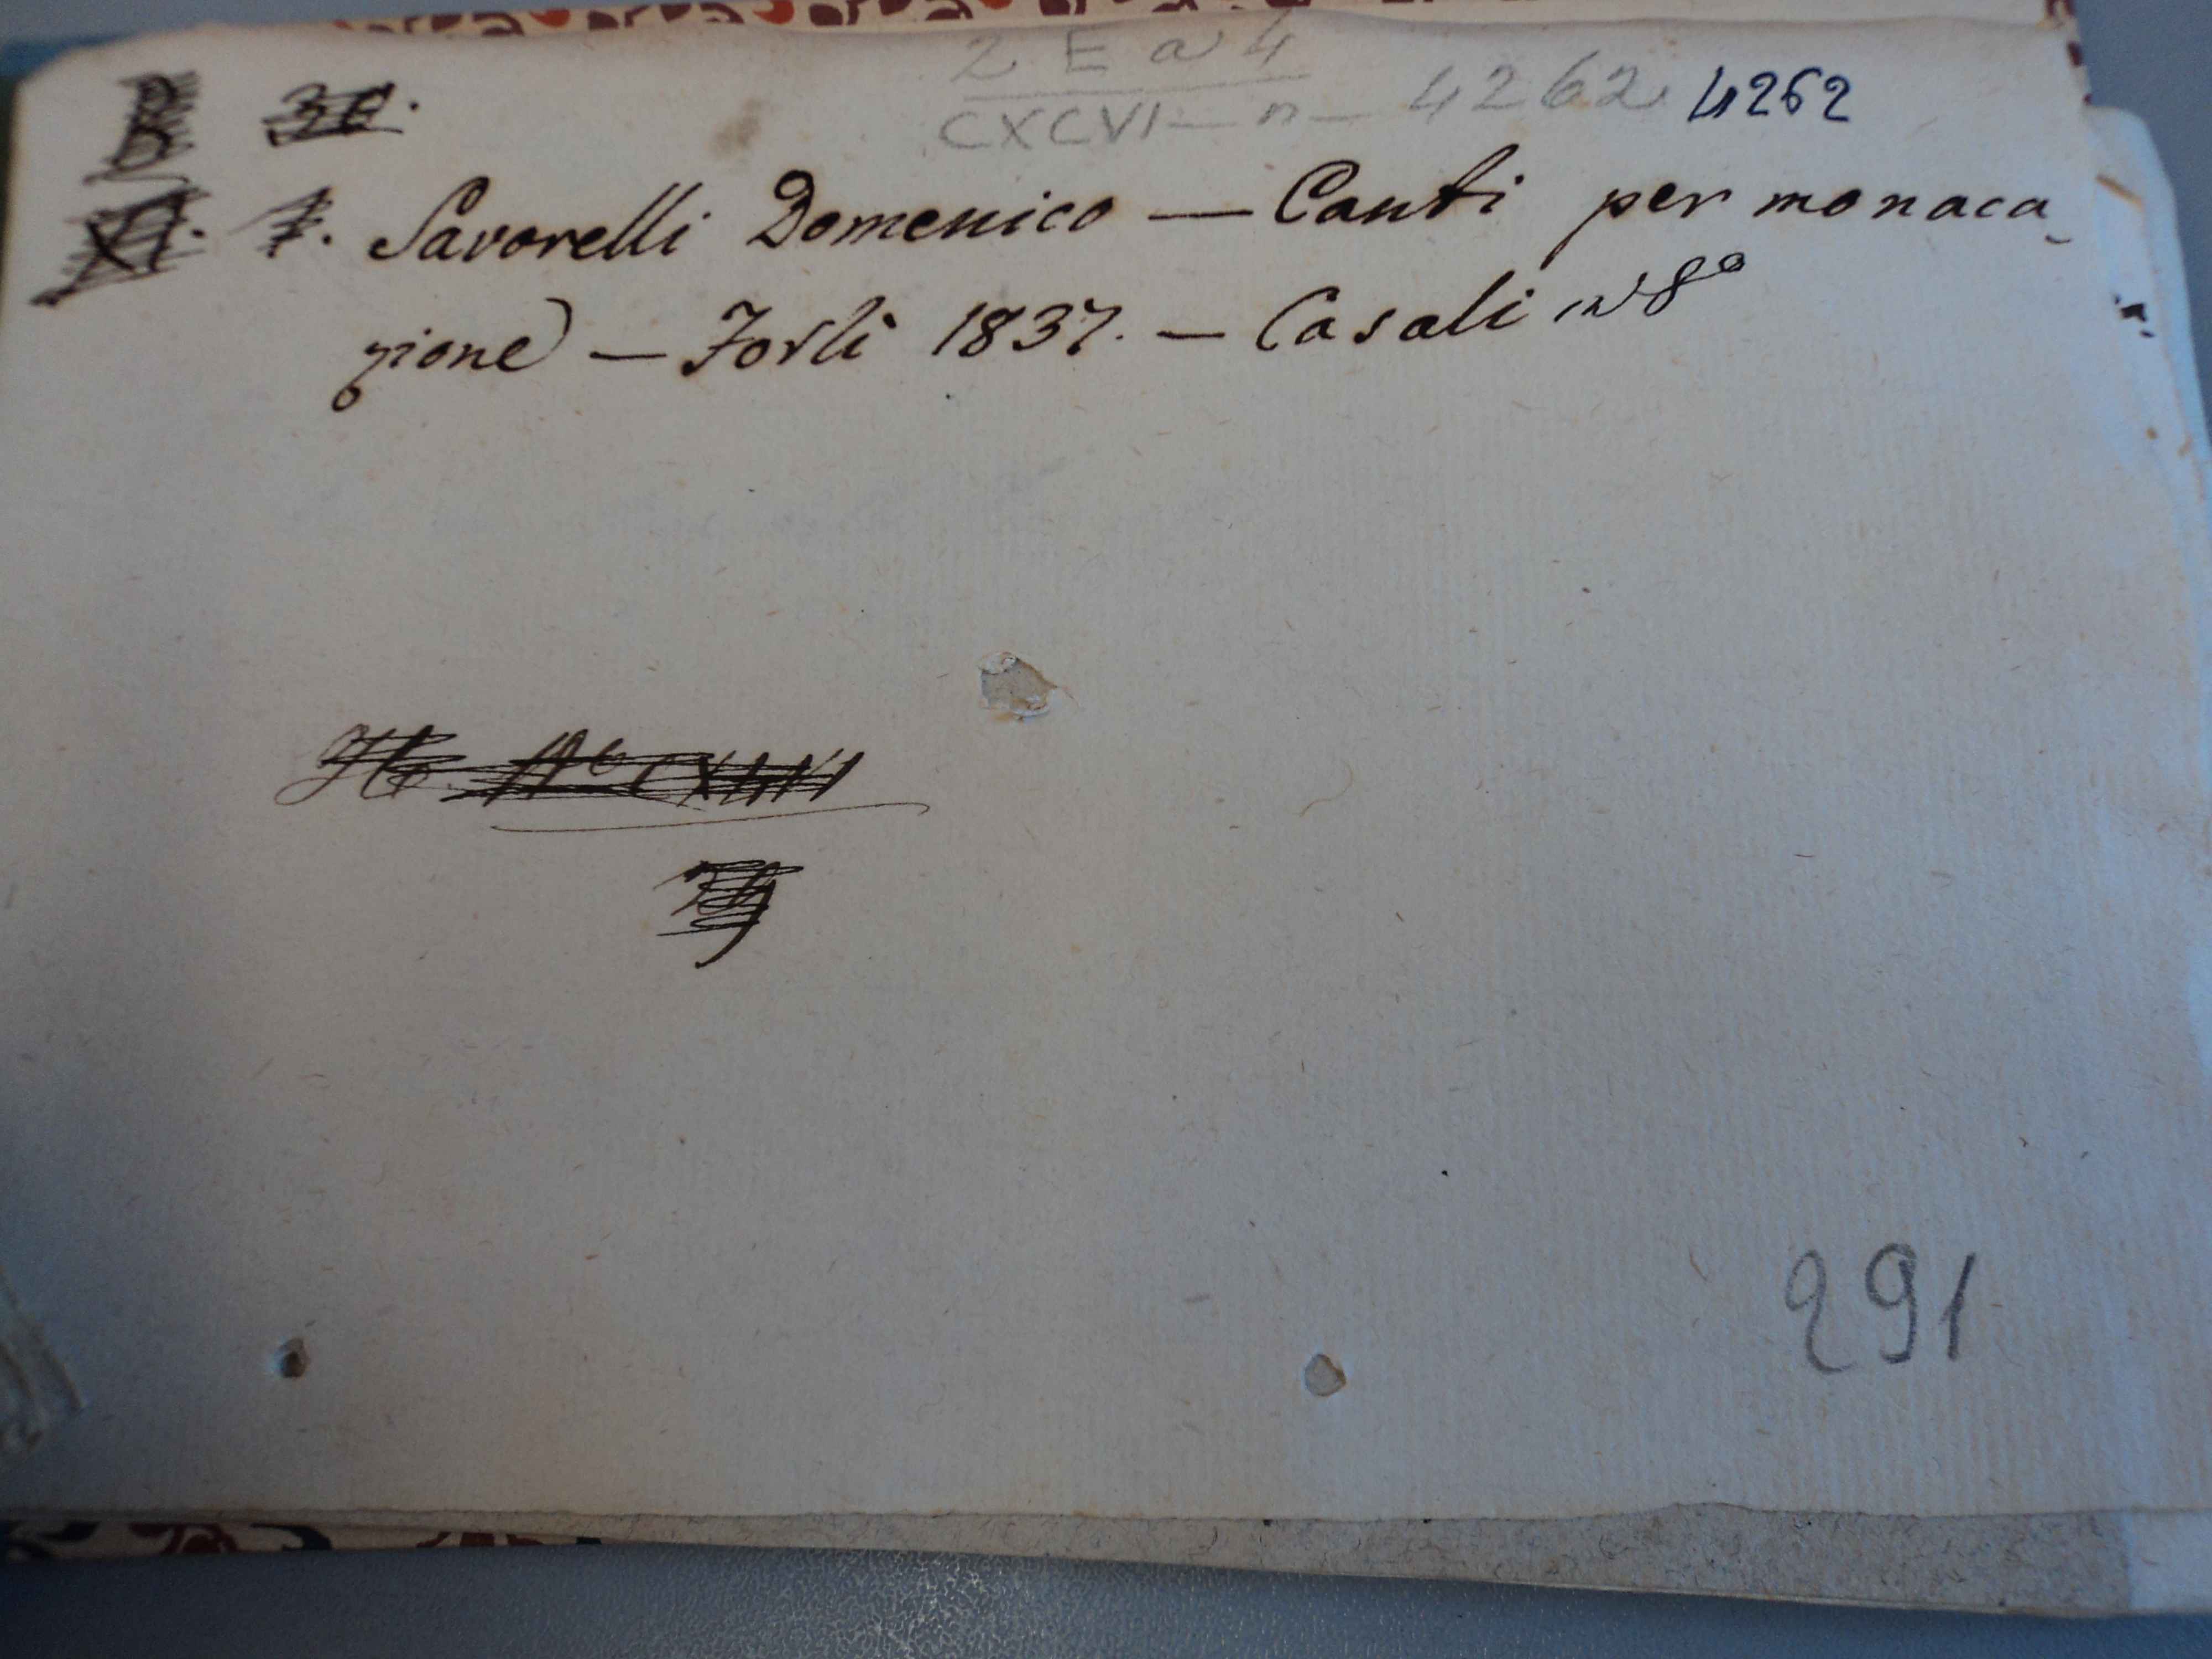 2 E a 4
CXCVI - n - 4262 4262
Savorelli Domenico — Canti per monaca-
zione — Forlì 1837. — Casali in 8º
291